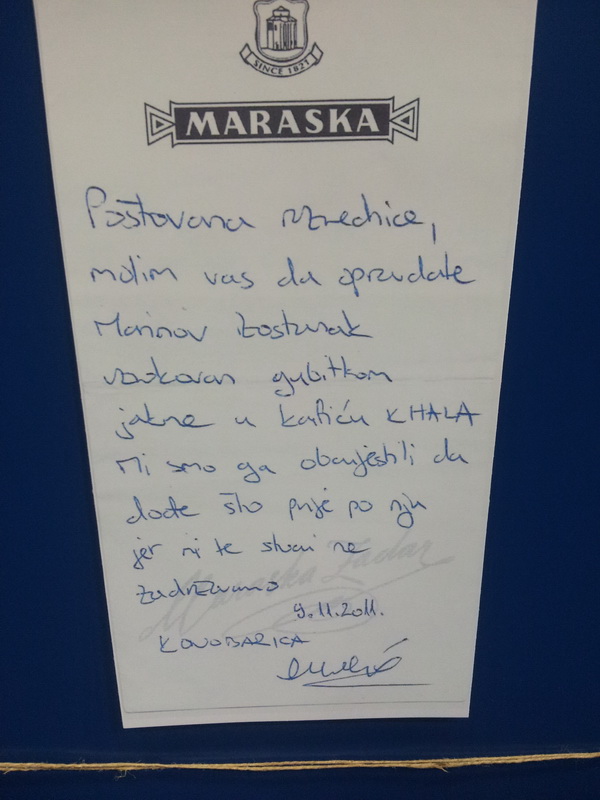 SINCE 1821
MARASKA
Poštovana razrednice,
molim vas da opravdate
Marinov izostanak
uzrokovan gubitkom
jakne u kafiću KHALA
Mi smo ga obavjestili da
dođe što prije po nju
jer mi te stvari ne
zadržavamo
Maraska Zadar
9.11.2011.
KONOBARICA